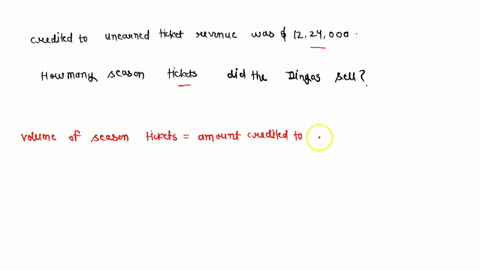 credited to unearned ticket revenue was $ 12,24,000.
How many season tickets did the Dingos sell?
volume of season tickets = amount credited to